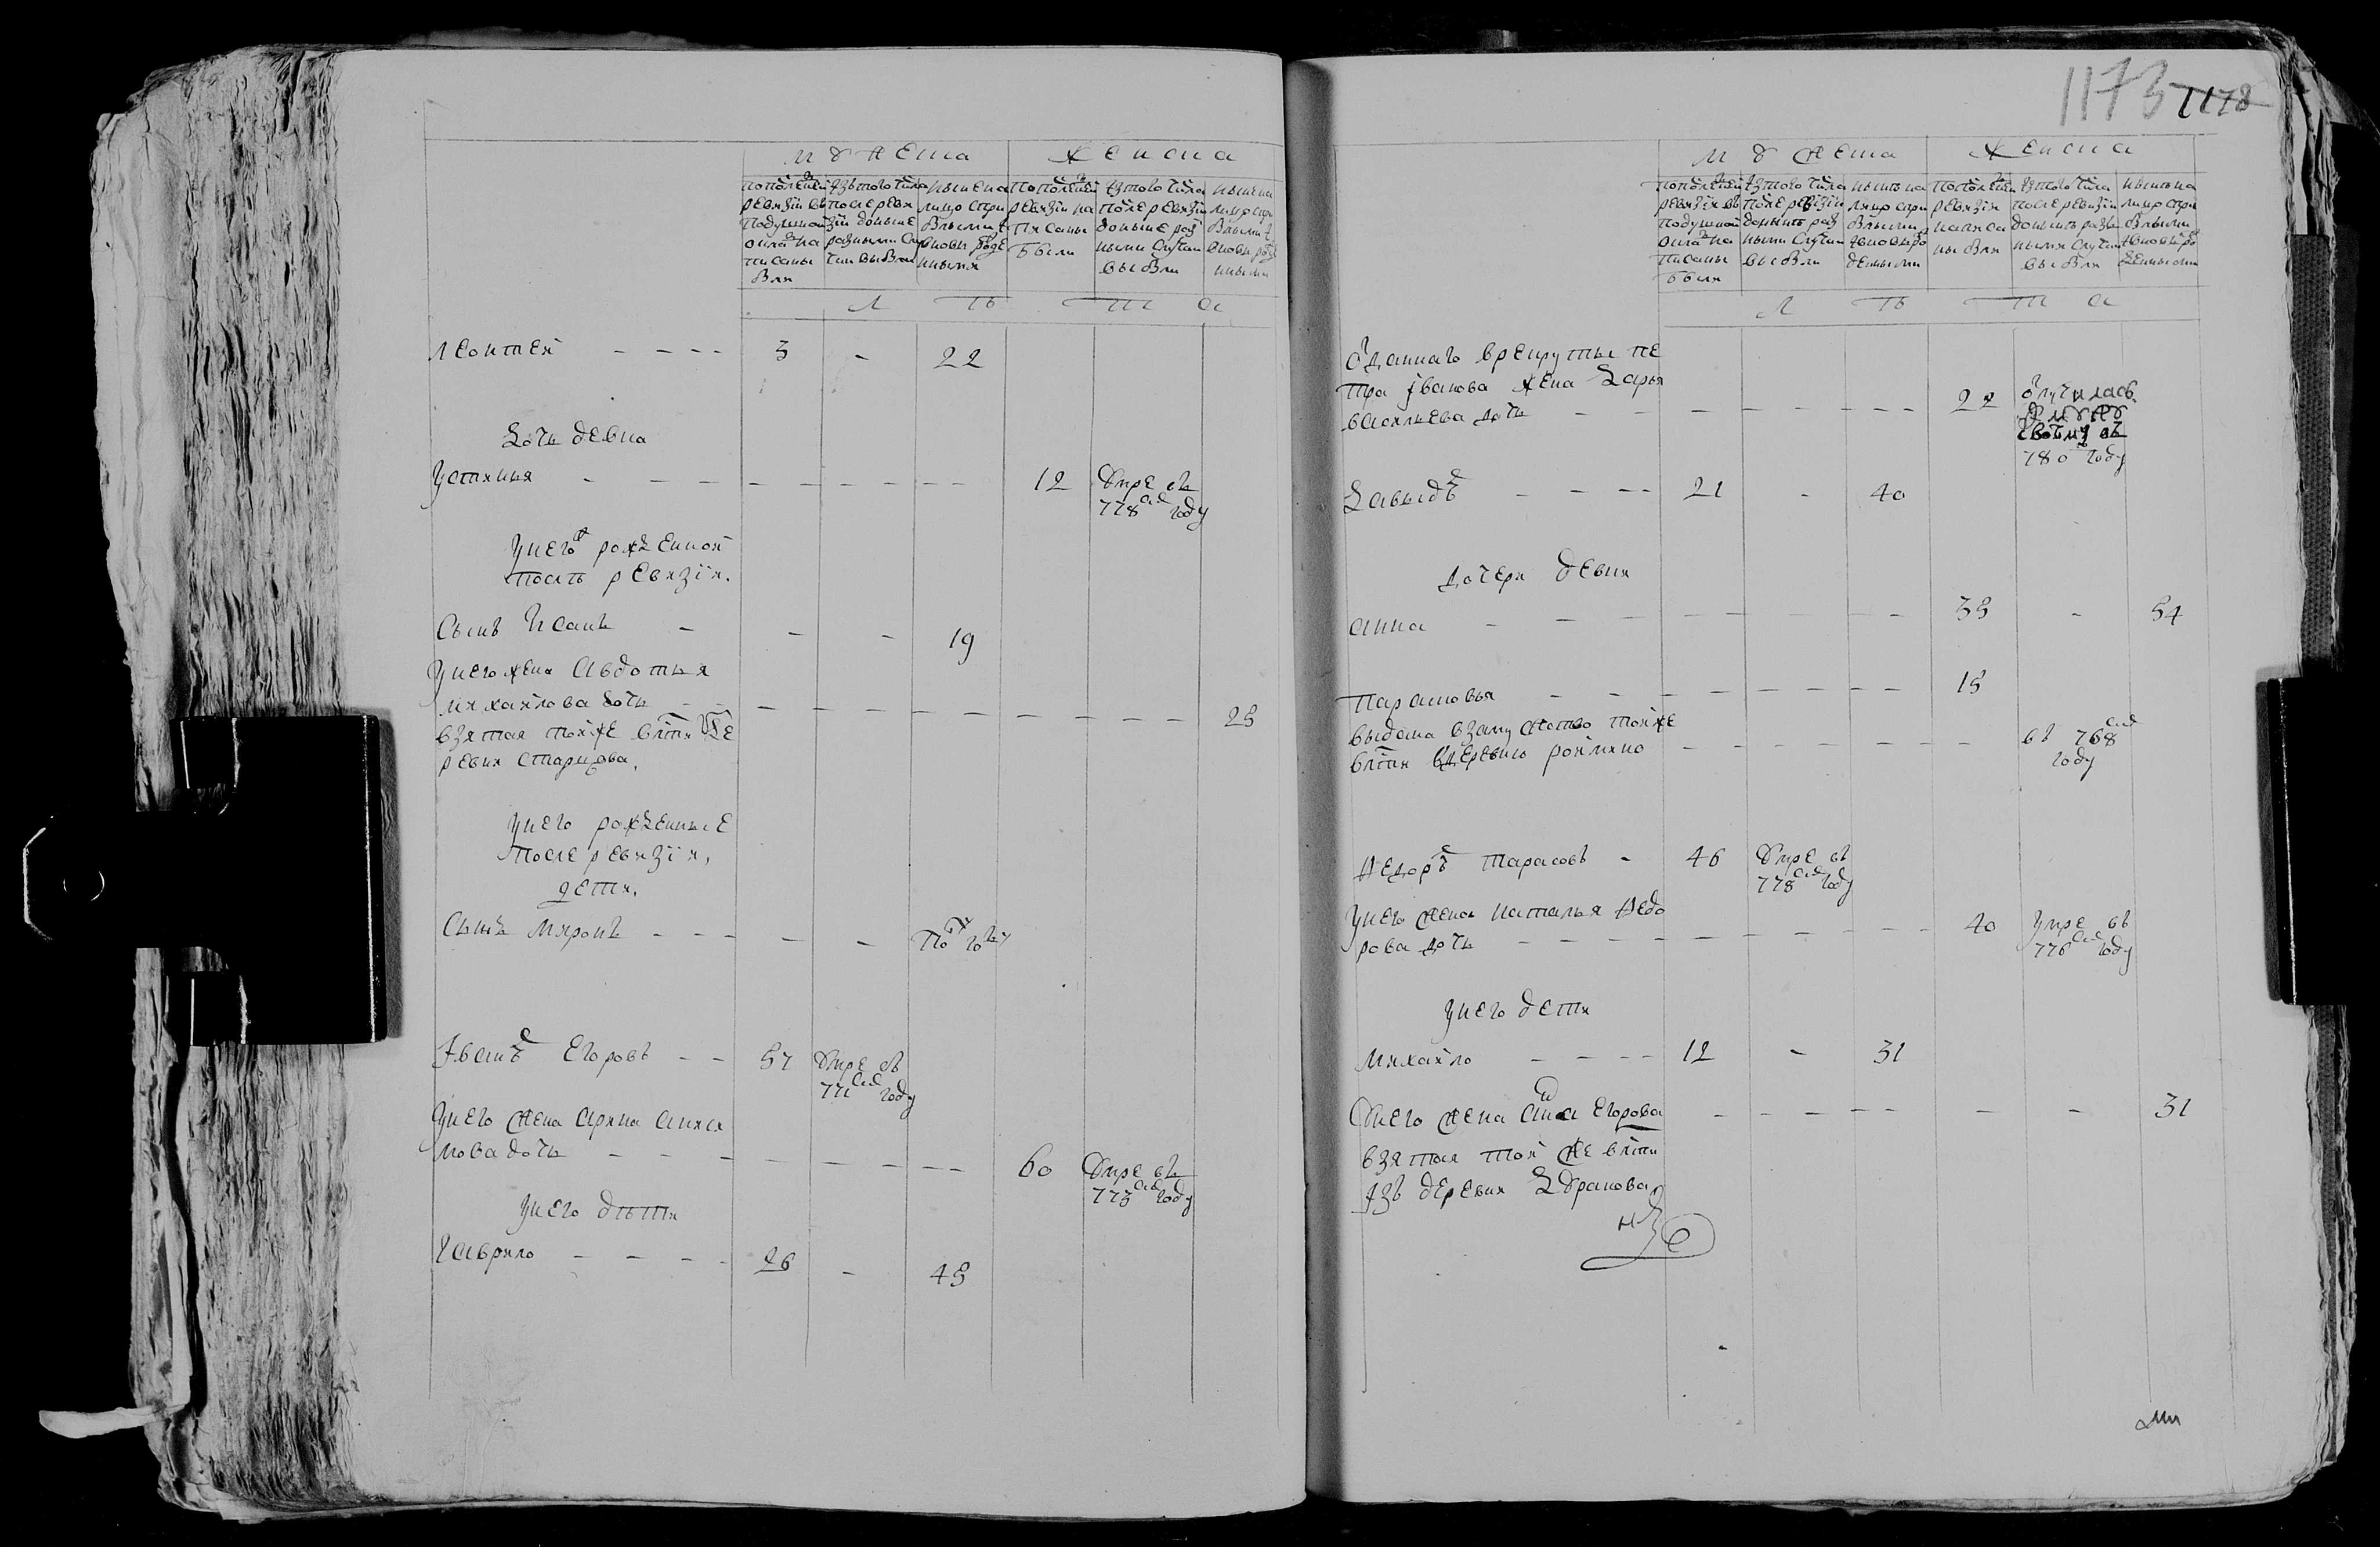 мужеска женска
по последней ревизіи въ подушной окладъ написаны были
изъ того числа после ревизіи доныне разными случаи выбыли
ныне на лицо съ прибылыми и вновь рожденными
по последней ревизіи написаны были
изъ того числа после ревизіи доныне разными случаи выбыли
ныне на лицо съ прибылыми и вновь рожденными
л ѣ т а
леонтей - - - - 3 - 22
дочь девка
устинья - - - - - - - - 12 умре въ
778 году
у него рожденной
послѣ ревизіи.
сынъ Исакъ - - - 19
у него жена авдотья
михайлова дочь - - - - - - - - - - 25
взятая той же вотчи де
ревни
у него рожденные
после ревизіи,
дети.
сынъ миронъ - - - - - по году
Iванъ Егоровъ - - 57 умре въ
771 году
у него жена арина
нова дочь - - - - - - - - 60 умре въ
773 году
у него дѣти
гаврило - - - - 26 - 45
1173 1178
мужеска женска
по последней ревизіи въ подушной окладъ написаны были
изъ того числа после ревизіи донынѣ разными случаи выбыли
нынѣ на лицо съ прибылыми и вновь рожденными
по последней ревизіи написаны были
изъ того числа после ревизіи донынѣ разными случаи выбыли
нынѣ на лицо съ прибылыми и вновь рожденными
л ѣ т а
отданнаго в рекруты пе
тра iванова жена дарья
васильева дочь - - - - - - - 22 отлучилась
к мужу
в
780 году
давыдъ - - - - 21 - 40
дочери девки
анна - - - - - - - 35 - 54
парасковья - - - - - - - 15
выдана взамужство той же
вотчи в деревню - - - - - - - въ 768
году
Федоръ тарасовъ - 46 умре въ
778 году
у него жена наталья Федо
рова дочь - - - - - - - - - 40 умре въ
776 году
у него дети
михайло - - - - 12 - 31
у него жена анна Егорова - - - - - - - 31
взятая той же вотчи
изъ деревни